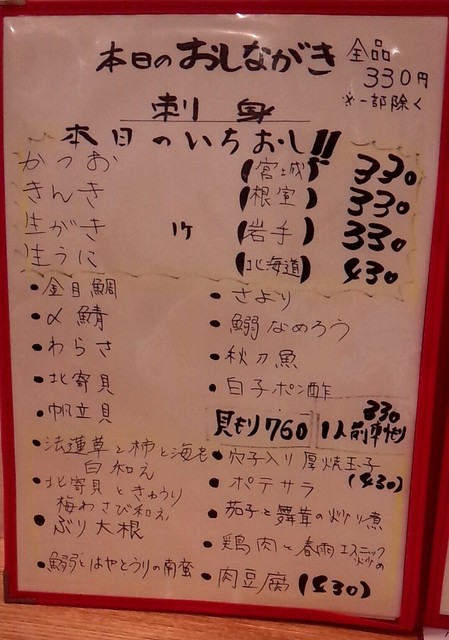 本日のおしながき
全品
330円
※一部除く
刺身
本日のいちおし!!
かつお (宮城) 330
きんき (根室) 330
生がき 1ケ (岩手) 330
生うに (北海道) 430
・金目鯛
・〆鯖
・わらさ
・北寄貝
・帆立貝
・法蓮草と柿と海老
白和え
・北寄貝ときゅうり
梅わさび和え
・ぶり大根
・鰯とはやとうりの南蛮
・さより
・鰯なめろう
・秋刀魚
・白子ポン酢
330
貝もり760 1人前
・穴子入り厚焼玉子
(430)
・ポテサラ
・茄子と舞茸の炒り煮
・鶏肉と春雨エスニック
炒め
・肉豆腐(430)